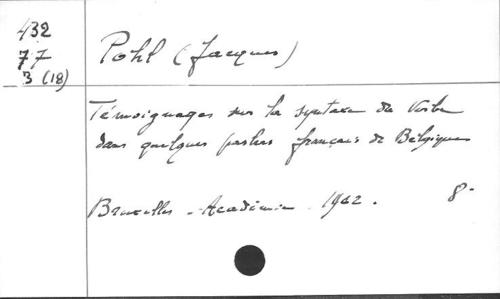 432
77
3 (18)
Pohl (Jacques)
Témoignages sur la syntaxe du Verbe
dans quelques parlers français de Belgique
Bruxelles - Académie - 1962. 8°